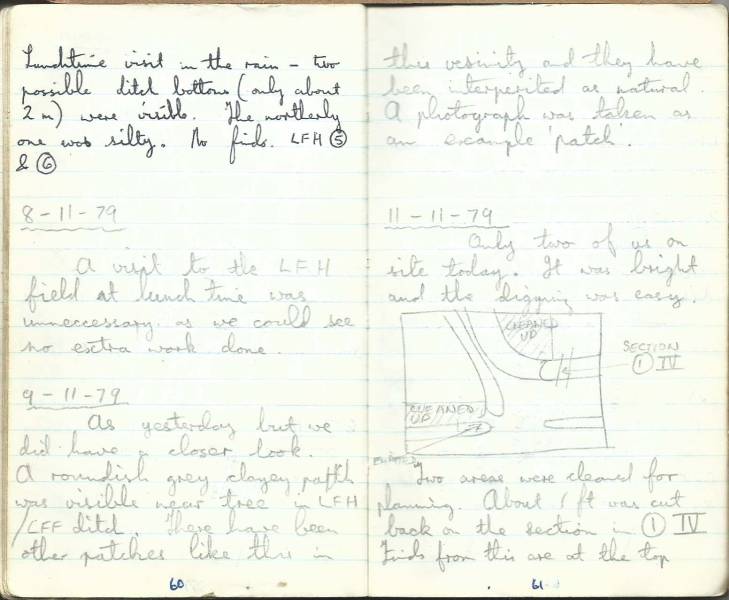 Lunchtime visit in the rain – two
possible ditch bottoms (only about
2 m) were visible. The northerly
one was silty. No finds. LFH ⑤
& ⑥
8-11-79
A visit to the LFH
field at lunch time was
unneccessary as we could see
no extra work done.
9-11-79
As yesterday but we
did have a closer look.
A roundish grey clayey patch
was visible near tree in LFH
/CFF ditch. There have been
other patches like this in
60
this vesinity and they have
been interperited as natural.
A photograph was taken as
an example 'patch'.
11-11-79
Only two of us on
site today. It was bright
and the digging was easy.
CLEANED
UP
SECTION
① IV
CLEANED
UP
Two areas were cleaned for
planning. About 1 ft was cut
back on the section in ① IV
Finds from this are at the top
61